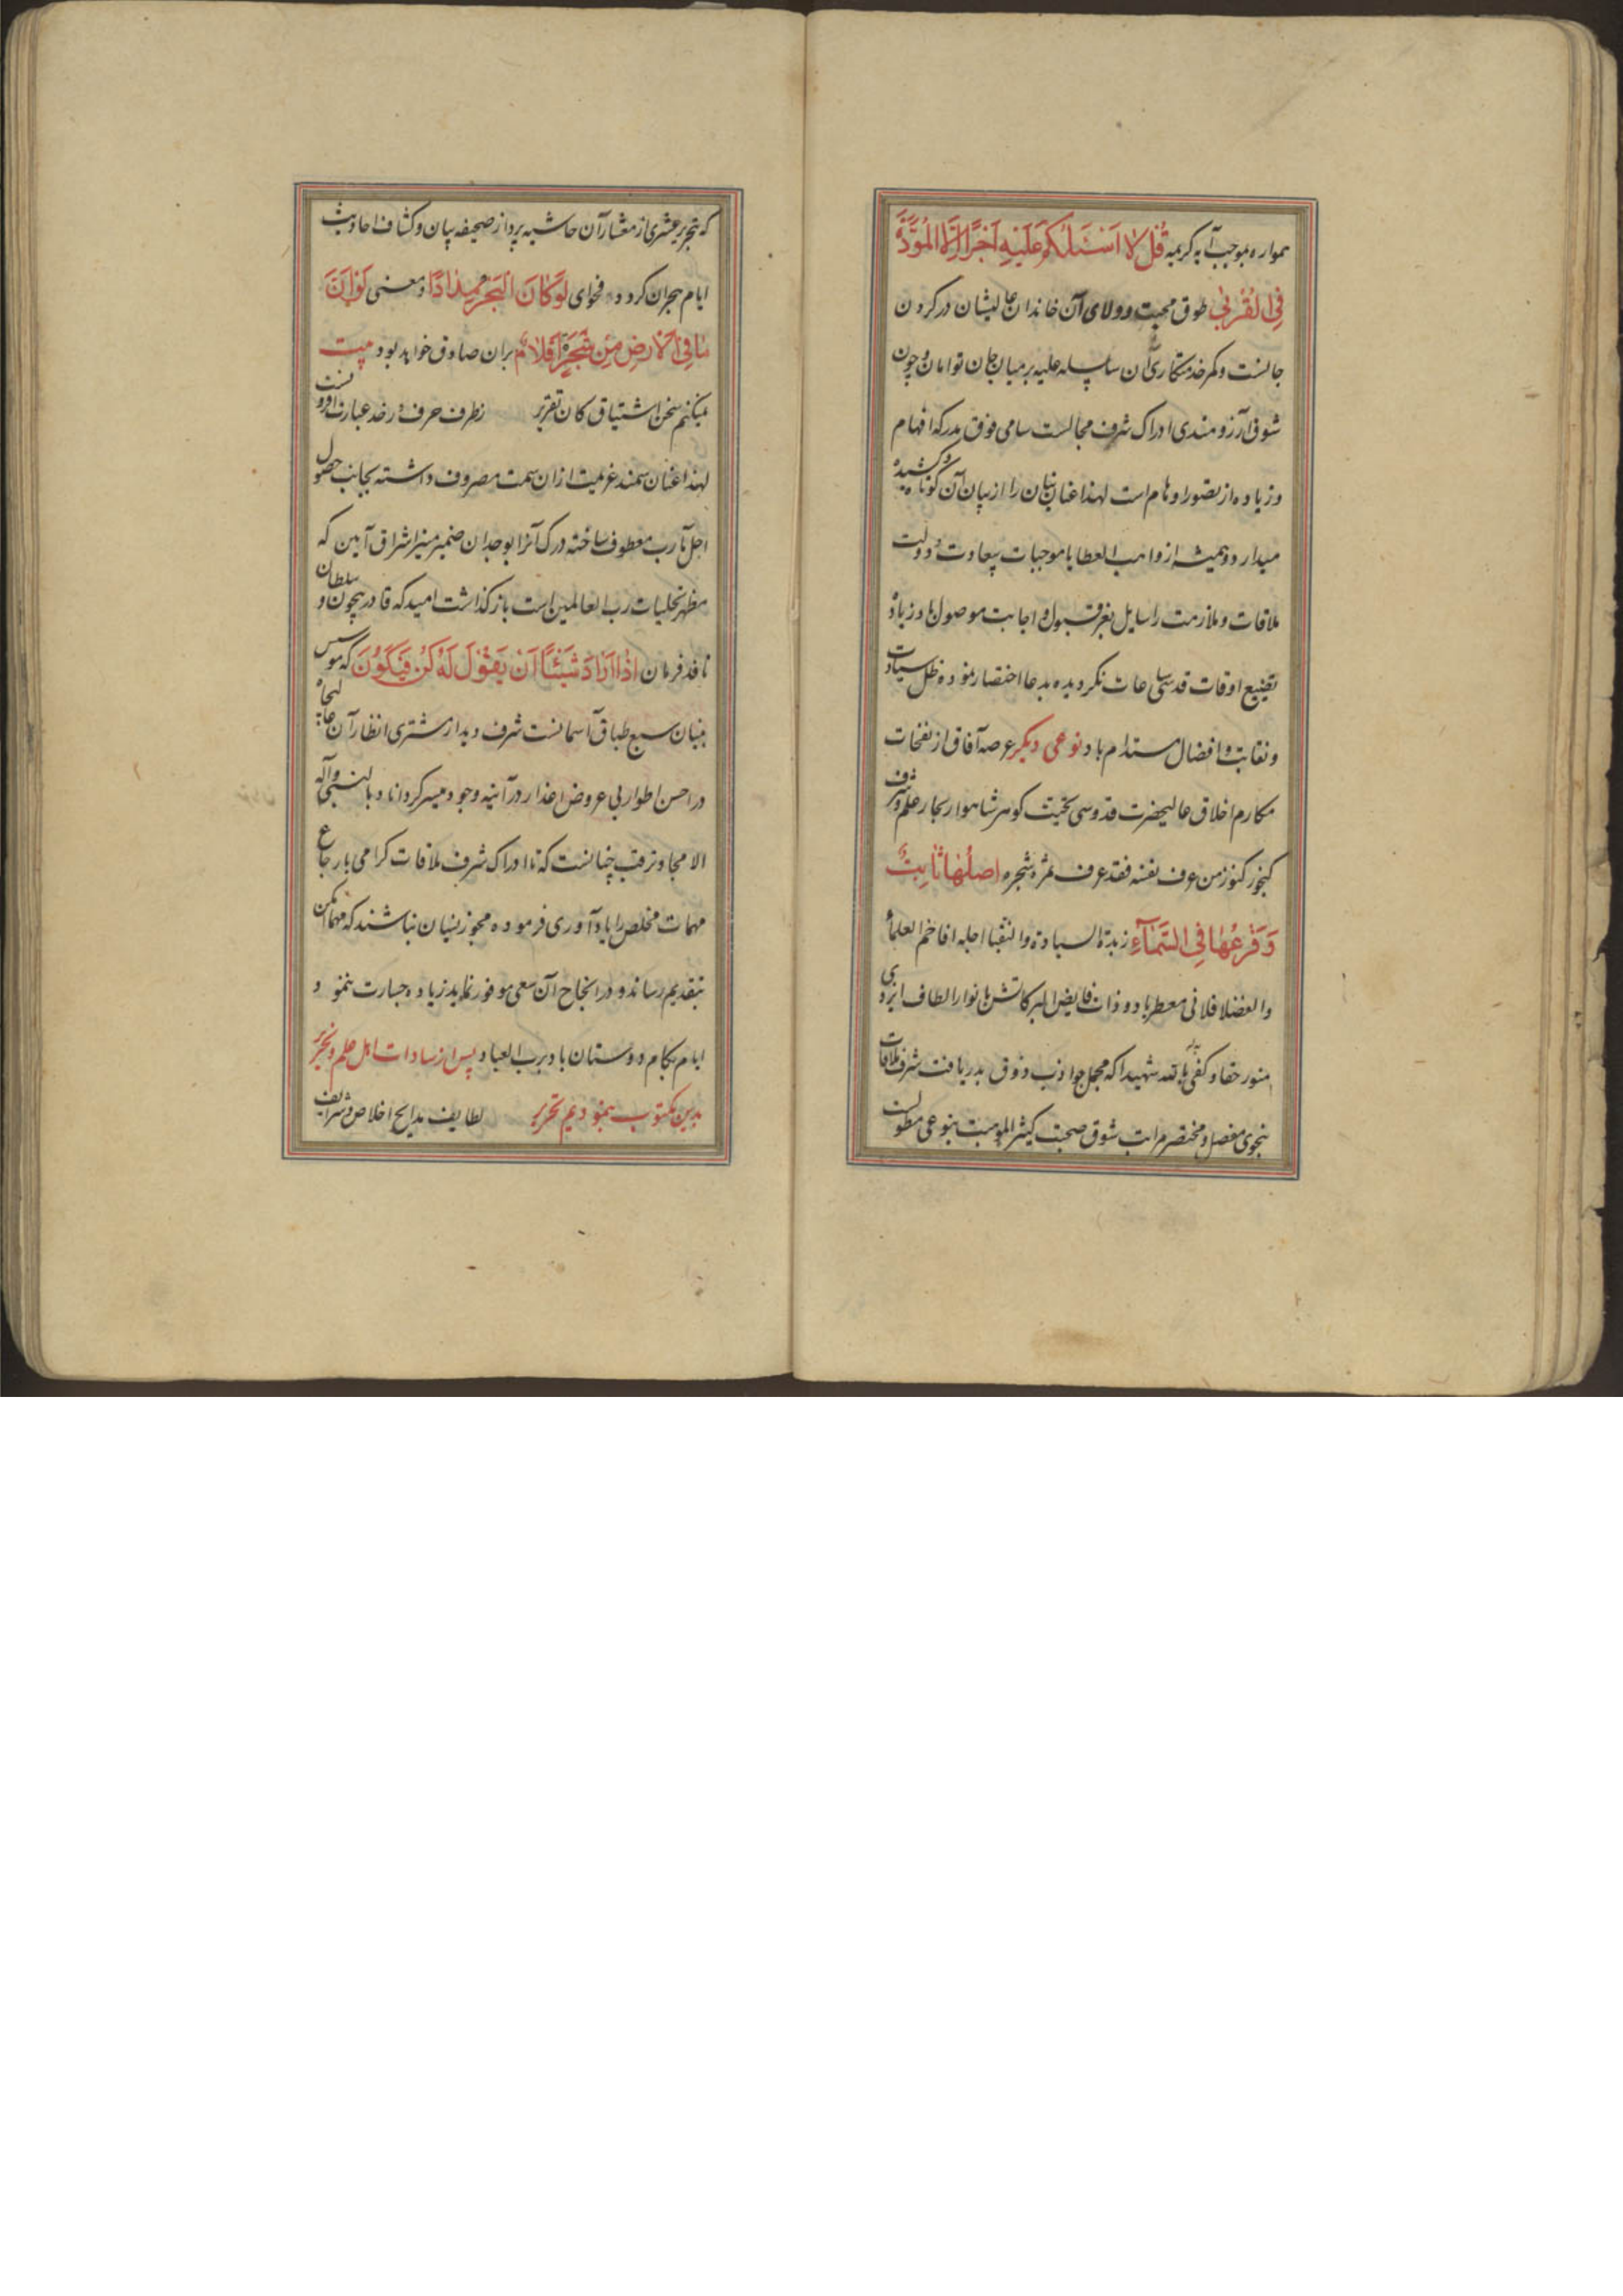 همواره بموجب آیه کریمه قُل لا اَسْئَلُکُم عَلَیْهِ اَجْرًا اِلَّا الْمَوَدَّةَ
فِی الْقُرْبٰی طوق محبت و ولای آن خاندان عالیشان در کردن
جانست و کمر خدمتکاری آن سلسله علیه بر میان جان توامان و چون
شوق و آرزومندی ادراک شرف مجالست سامی فوق مدرکه افهام
و زیاده از تصور اوهام است لهذا عنان بنان را از بیان آن کوتاه و کشیده
میدارد و همیشه از واهب العطایا موجبات سعادت و دولت
ملاقات و ملازمت را سایل بعز قبول و اجابت موصول باد زیاده
تضییع اوقات قدسی ساعات نکردیده بدعا اختصار نموده ظل سیادت
و نقابت و افضال مستدام باد نوعی دیکر عرصه آفاق از نفحات
مکارم اخلاق عالیحضرت قدوسی کوهر شاهوار بحار علم و شرف
کنجور کنوز من عرف نفسه فقد عرف ثمره شجره اصلُها ثابِتٌ
وَ فَرْعُها فِی السَّمَآءِ زبدة السیادة والنقبا اجله افاخم العلمآء
والفضلا فلانی معطر باد و ذات فایض البرکاتش بانوار الطاف ایزدی
منور حقا و کفی بالله شهیدا که مجمل جواذب ذوق بدریافت شرف ملاقات
بنحوی مفصل و مختصر مراتب شوق صحبت کثیر الموهبت بنوعی مطولست
که بتحریر عشری از معشار آن حاشیه پرداز صحیفه بیان و کشاف احادیث
ایام هجران کردد فحوای لَوْ کانَ الْبَحْرُ مِدادًا و معنی لَوْ اَنَّ
مٰا فِی الاَرْضِ مِن شَجَرَةٍ اَقْلامٌ بران صادق خواهد بود بیت
میکنم سخن اشتیاق کان تقریر ز طرف حرف و رخد عبارت افزونست
لهذا عنان سمند عزیمت ازان سمت مصروف داشته بجانب حصول
اجل مآرب معطوف ساخته درک آنرا بوجدان ضمیر منیر اشراق آیین که
مظهر تجلیات رب العالمین است باز کذاشت امید که قادر بیچون و سلطان
نافذ فرمان اِذا اَرادَ شَیْئًا اَنْ یَقُولَ لَهُ کُنْ فَیَکُونُ که موسس
بنیان سبع طباق آسمانست شرف دیدار مشتری انظار آن
در احسن اطوار بی عروض اعذار در آئینه وجود میسر کرداناد بالنبی وآله
الامجاد ترقب چنانست که تا ادراک شرف ملاقات کرامی بارجاع
مهمات مخلص را یادآوری فرموده مجوز نسیان نباشند که مهما امکن
بتقدیم رساند و در انجاح آن سعی موفور نماید زیاده جسارت ننمود
ایام بکام دوستان باد برب العباد پس از سادات اهل علم و تحریر
بدین مکتوب بنمودیم تحریر لطایف مدایح اخلاص و شرایف